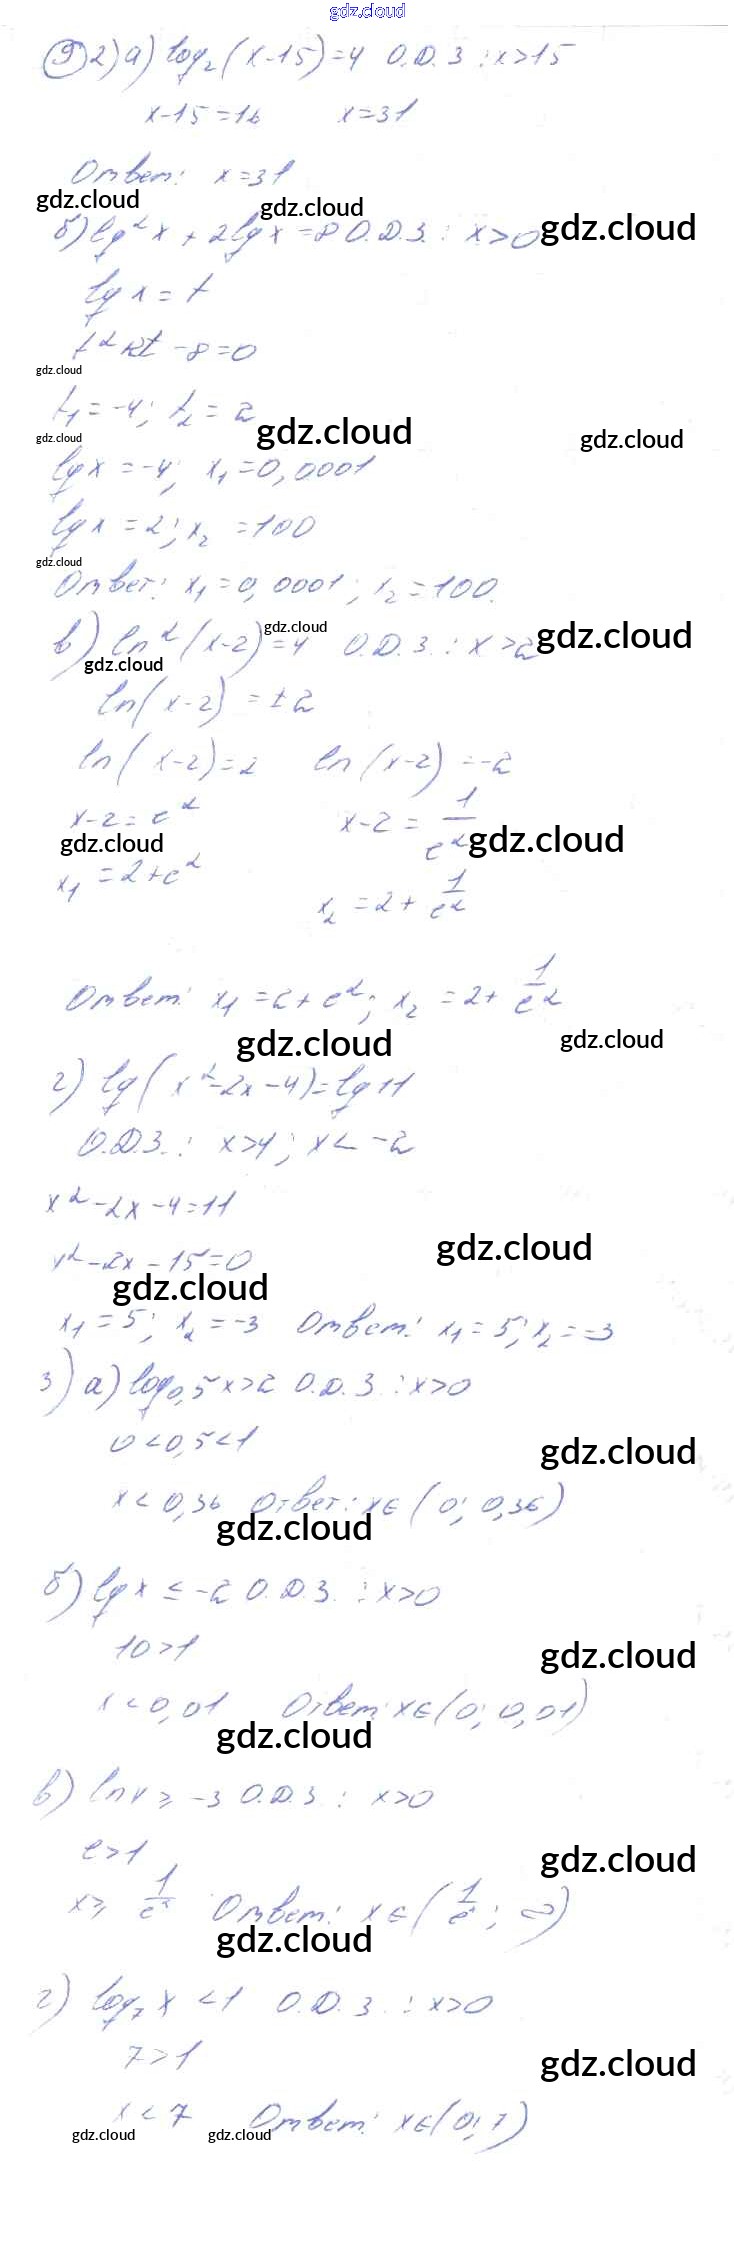 gdz.cloud
9 2) а) log₂(x-15)=4 О.Д.З.: x>15
x-15=16 x=31
Ответ: x=31
gdz.cloud gdz.cloud gdz.cloud
б) lg²x + 2lgx =8 О.Д.З.: x>0
lg x = t
t²+2t-8=0
gdz.cloud
t₁=-4; t₂=2
gdz.cloud gdz.cloud gdz.cloud
lgx=-4; x₁=0,0001
lgx=2; x₂=100
gdz.cloud
Ответ: x₁=0,0001; x₂=100.
gdz.cloud gdz.cloud
в) ln²(x-2)=4 О.Д.З.: x>2
gdz.cloud
ln(x-2)=±2
ln(x-2)=2 ln(x-2)=-2
x-2=e² x-2=1/e²
gdz.cloud gdz.cloud
x₁=2+e²
x₂=2+1/e²
Ответ: x₁=2+e²; x₂=2+1/e²
gdz.cloud gdz.cloud
г) lg(x²-2x-4)=lg11
О.Д.З.: x>4; x<-2
x²-2x-4=11
gdz.cloud
x²-2x-15=0
gdz.cloud
x₁=5; x₂=-3 Ответ: x₁=5; x₂=-3
3) а) log₀,₅x>2 О.Д.З.: x>0
0<0,5<1
gdz.cloud
x<0,36 Ответ: x∈(0; 0,36)
gdz.cloud
б) lgx≤-2 О.Д.З.: x>0
10>1
gdz.cloud
x<0,01 Ответ: x∈(0; 0,01)
gdz.cloud
в) lnx≥-3 О.Д.З.: x>0
e>1
gdz.cloud
x≥ Ответ: x∈( ; ∞)
gdz.cloud
г) log₇x<1 О.Д.З.: x>0
7>1
gdz.cloud
x<7 Ответ: x∈(0; 7)
gdz.cloud gdz.cloud